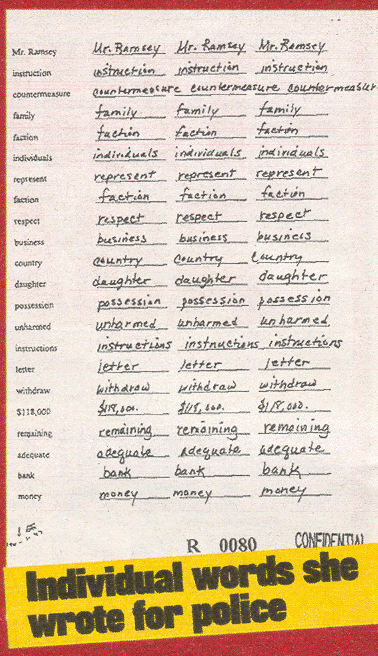 Mr. Ramsey Mr. Ramsey Mr. Ramsey Mr. Ramsey
instruction instruction instruction instruction
countermeasure countermeasure countermeasure countermeasure
family family family family
faction faction faction faction
individuals individuals individuals individuals
represent represent represent represent
faction faction faction faction
respect respect respect respect
business business business business
country country country country
daughter daughter daughter daughter
possession possession possession possession
unharmed unharmed unharmed unharmed
instructions instructions instructions instructions
letter letter letter letter
withdraw withdraw withdraw withdraw
$118,000 $118,000. $118,000. $118,000.
remaining remaining remaining remaining
adequate adequate adequate adequate
bank bank bank bank
money money money money
R 0080 CONFIDENTIAL
Individual words she
wrote for police